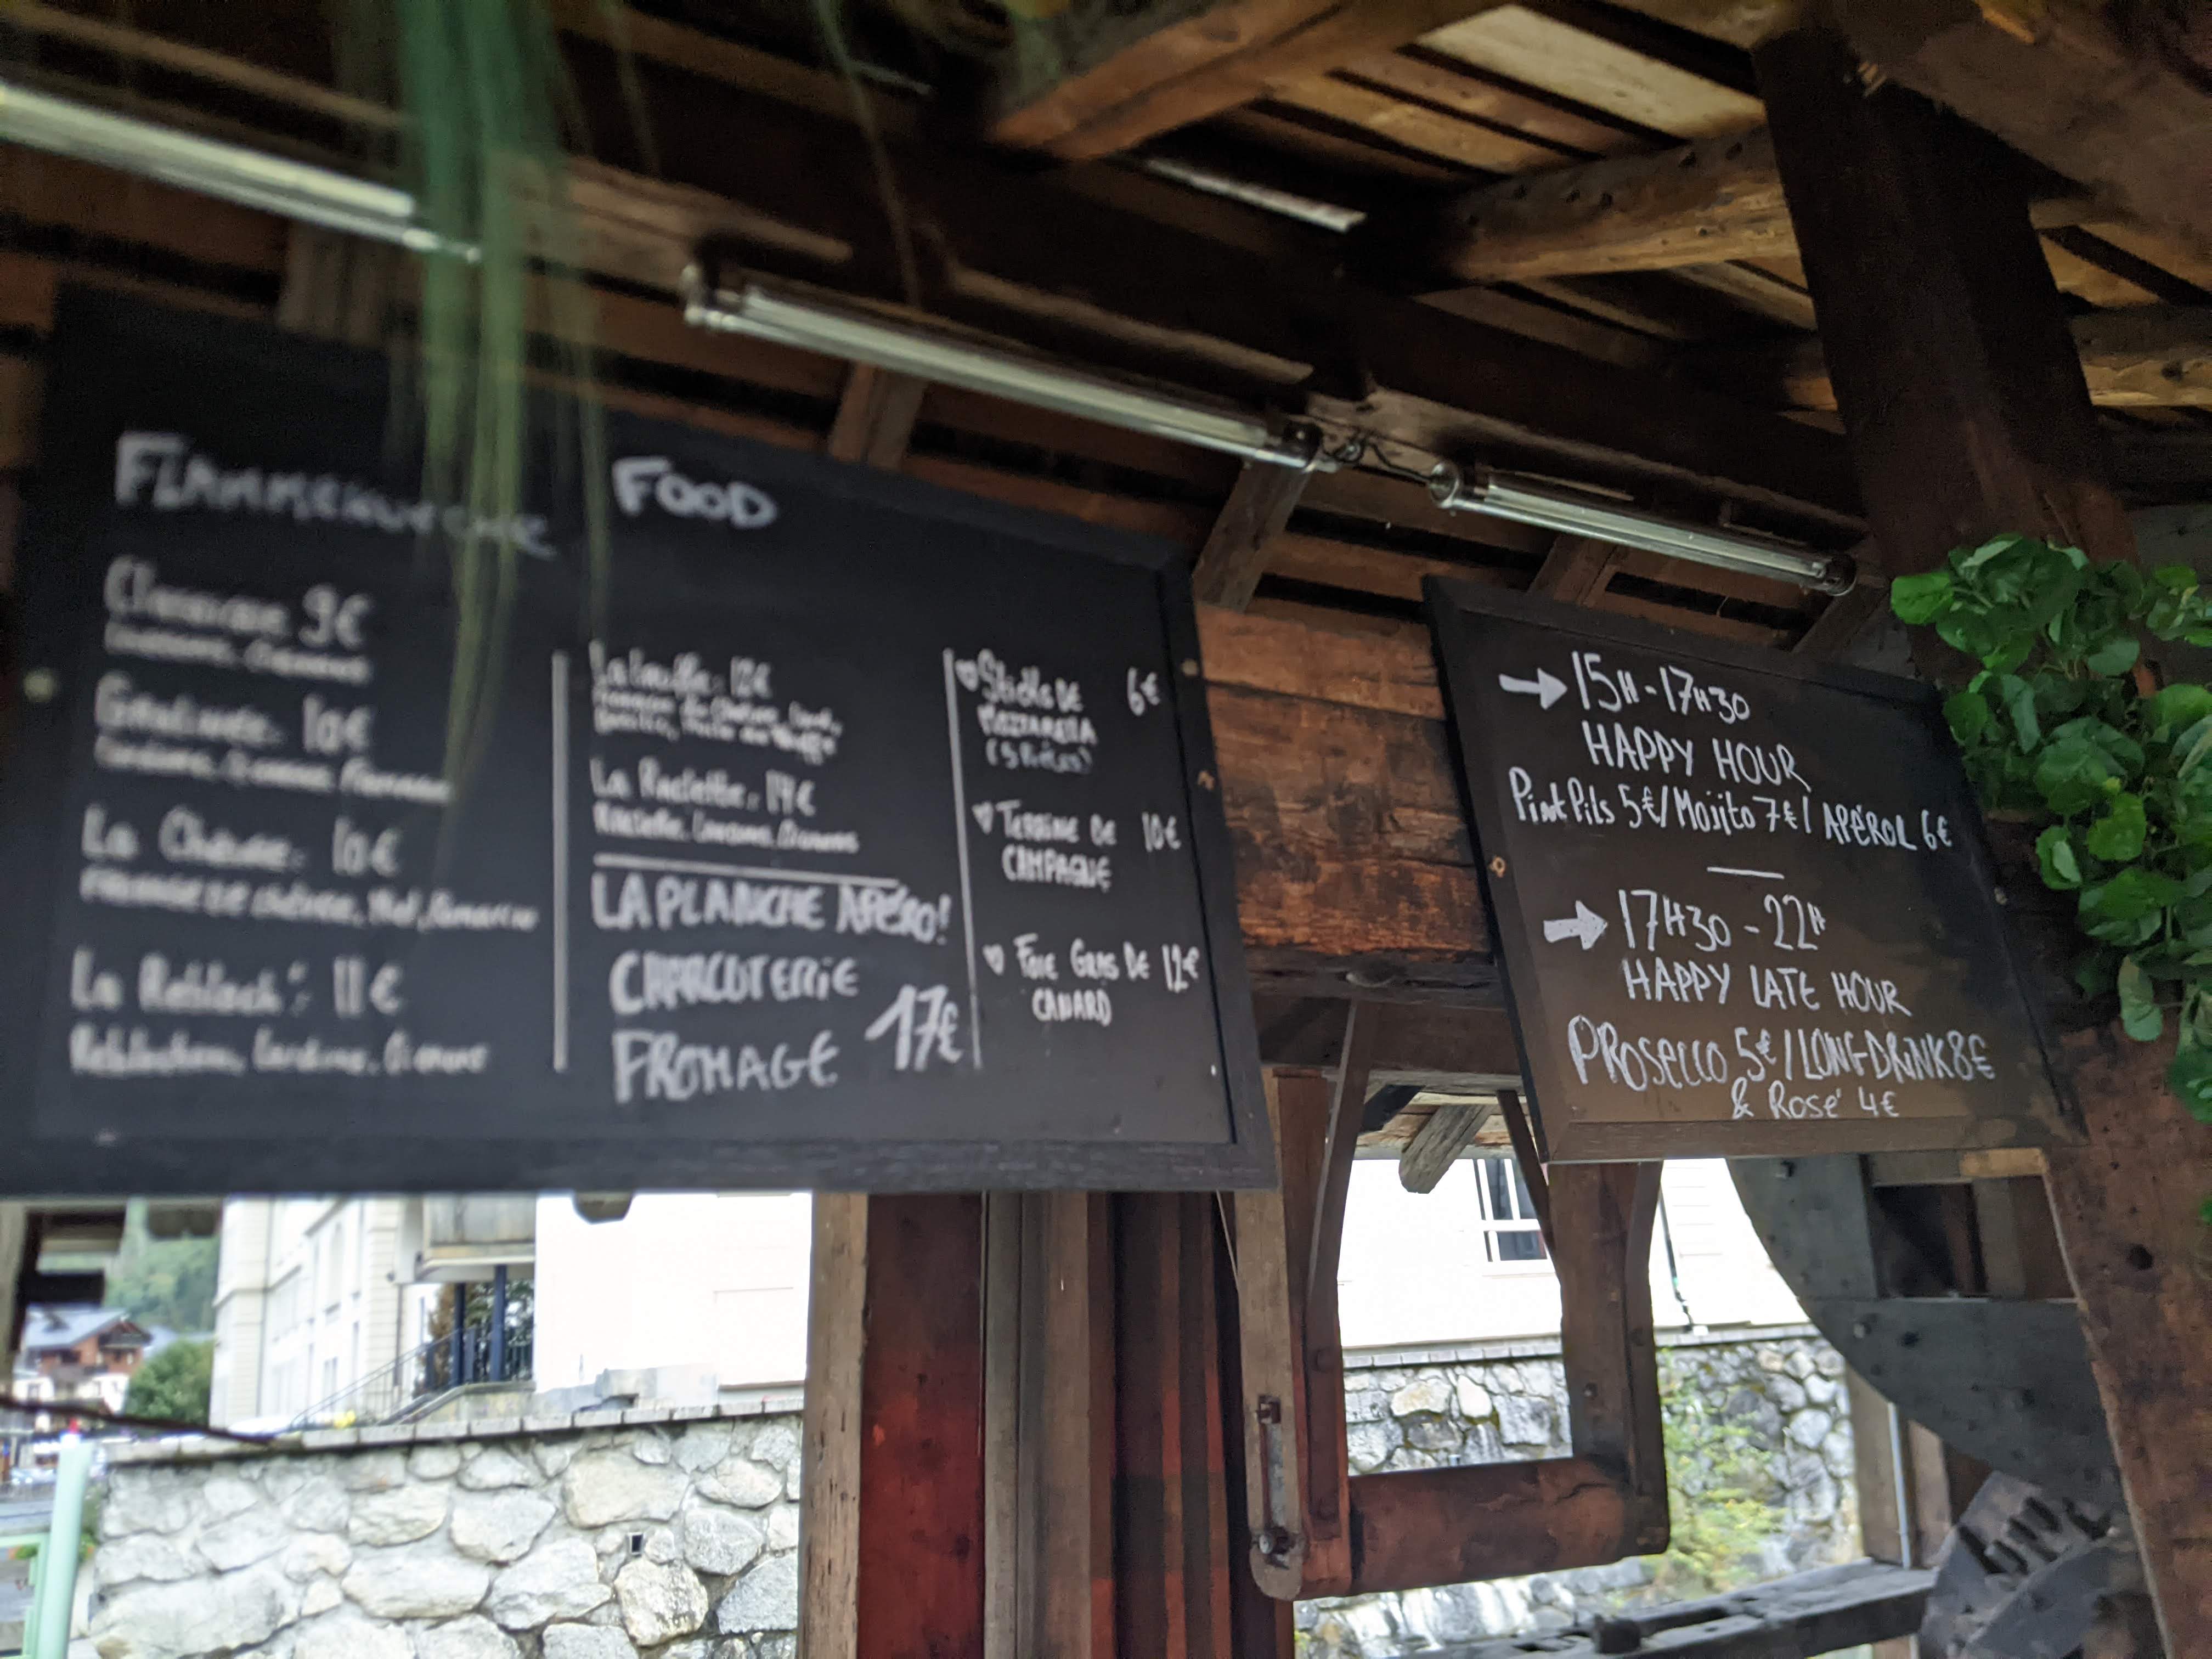 FLAMMEKUECHE
FOOD
Classique 9€
Gratinée 10€
La Chèvre 10€
FROMAGE DE CHÈVRE, Miel,
La Robloch': 11€
Reblochon, Lardons, Oignons
La Truffe: 12€
La Raclette: 14€
Raclette, Lardons, Oignons
LA PLANCHE APÉRO!
CHARCUTERIE
FROMAGE 17€
Sticks DE 6€
MOZZARELLA
TERRINE DE 10€
CAMPAGNE
FOIE GRAS DE 12€
CANARD
→ 15H-17H30
HAPPY HOUR
Pint Pils 5€/Mojito 7€/ APÉROL 6€
→ 17H30-22H
HAPPY LATE HOUR
PROSECCO 5€/LONG-DRINK 8€
& Rosé 4€